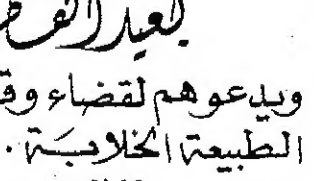 لعيد الفط
ويدعوهم لقضاء وق
الطبيعة الخلابة.